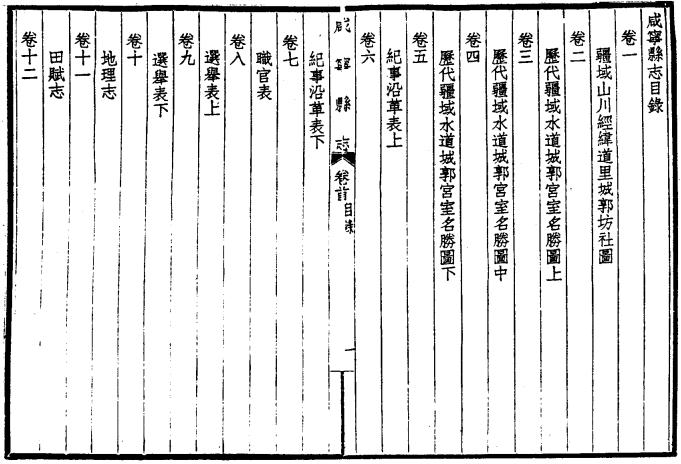 咸寧縣志目錄
卷一
疆域山川經緯道里城郭坊社圖
卷二
歷代疆域水道城郭宮室名勝圖上
卷三
歷代疆域水道城郭宮室名勝圖中
卷四
歷代疆域水道城郭宮室名勝圖下
卷五
紀事沿革表上
卷六
咸寧縣志 卷首目錄 一
紀事沿革表下
卷七
職官表
卷八
選舉表上
卷九
選舉表下
卷十
地理志
卷十一
田賦志
卷十二